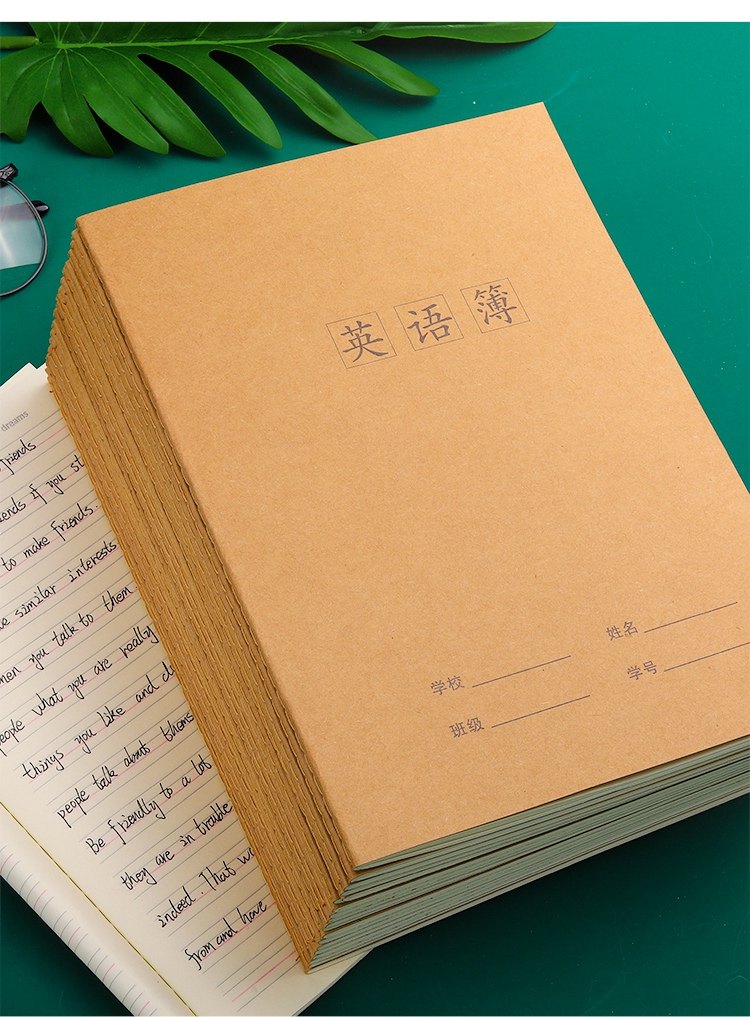 英语簿
学校
姓名
班级
学号
dreams
friends
ends if you st
to make friends.
e similar interests
hen you talk to them.
eople what you are really
things you like and d
people talk about thems
Be friendly to a lot
they are in trouble
indeed. That w
from and have